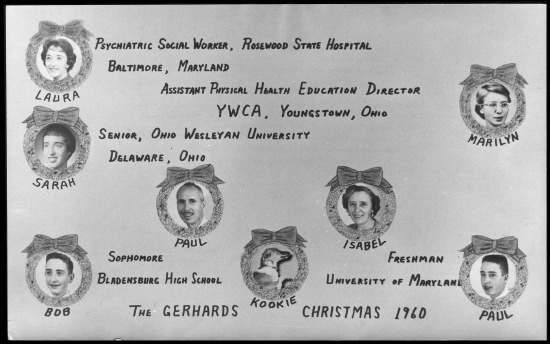 Psychiatric Social Worker, Rosewood State Hospital
Baltimore, Maryland
LAURA
Assistant Physical Health Education Director
YWCA, Youngstown, Ohio
MARILYN
Senior, Ohio Wesleyan University
Delaware, Ohio
SARAH
PAUL
ISABEL
Sophomore
Bladensburg High School
BOB
KOOKIE
Freshman
University of Maryland
PAUL
The GERHARDS CHRISTMAS 1960